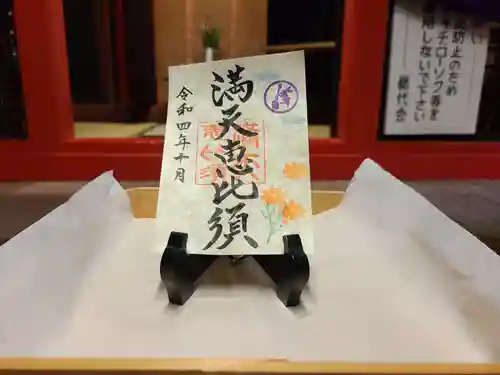 満天恵比須
令和四年十月
防止のため
チローソク等を
用しないで下さい
総代会